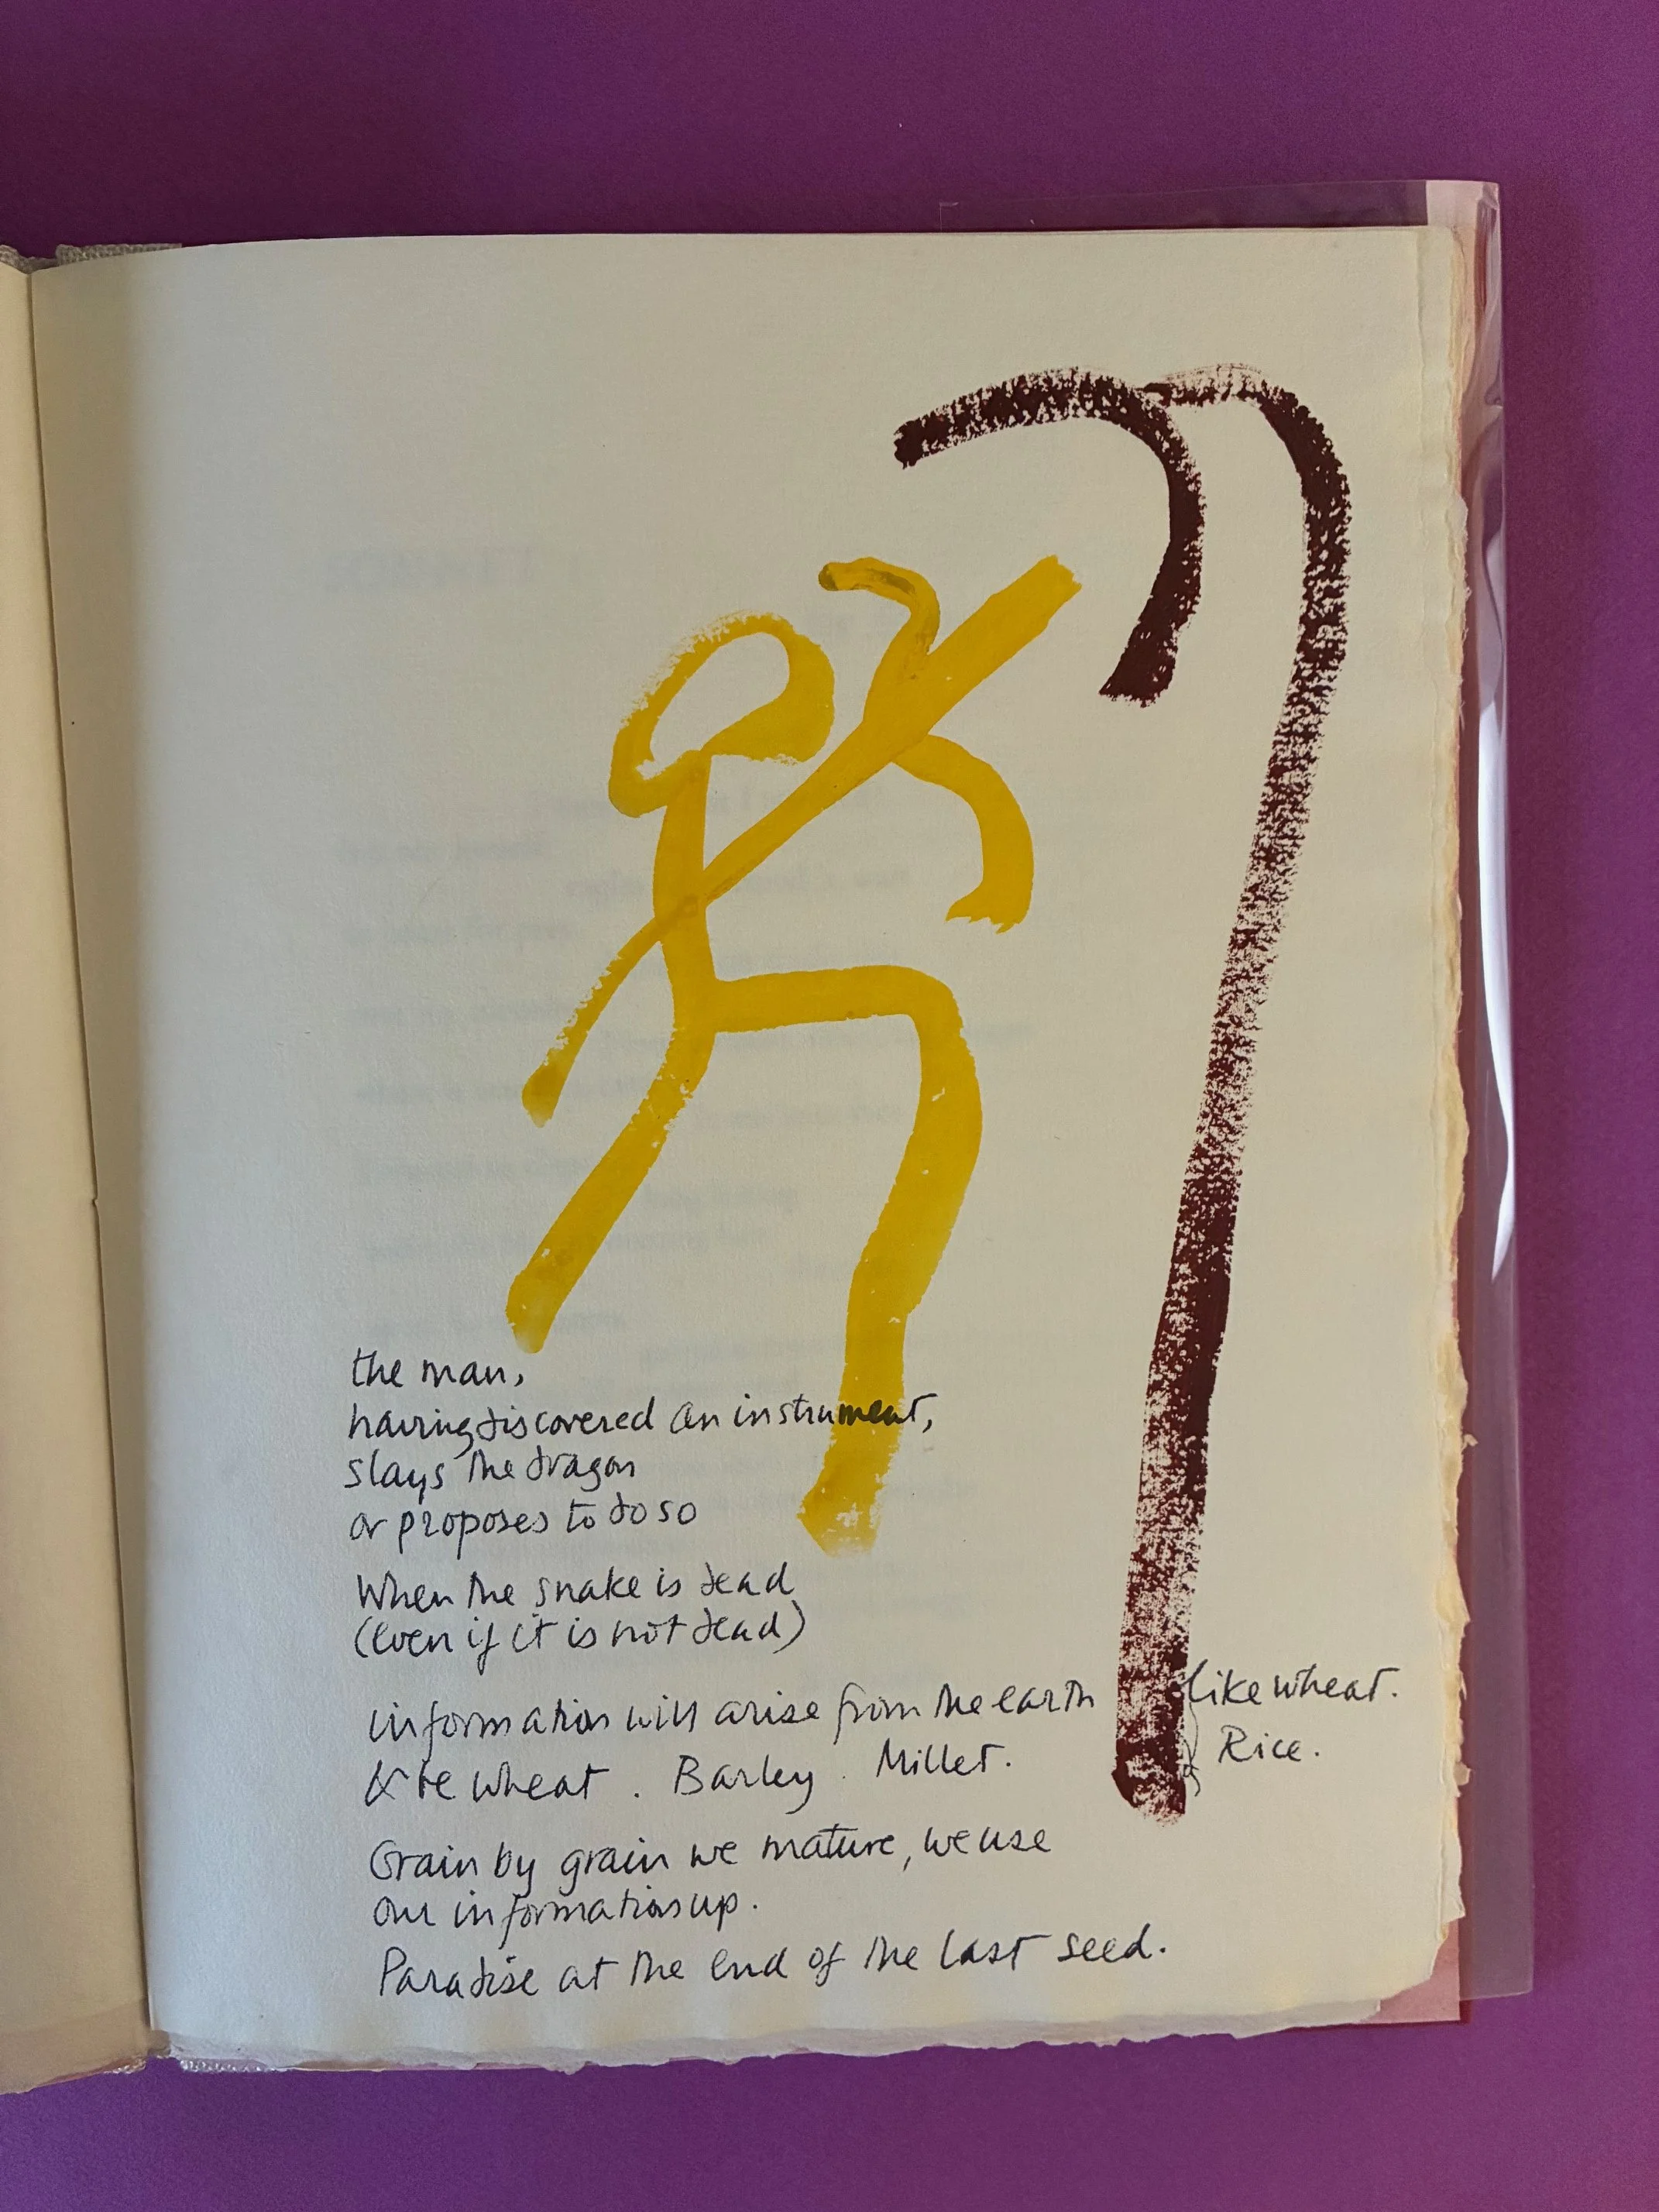 the man,
having discovered an instrument,
slays the dragon
or proposes to do so
When the snake is dead
(even if it is not dead)
information will arise from the earth like wheat.
& be wheat. Barley. Millet. Rice.
Grain by grain we mature, we use
our information up.
Paradise at the end of the last seed.